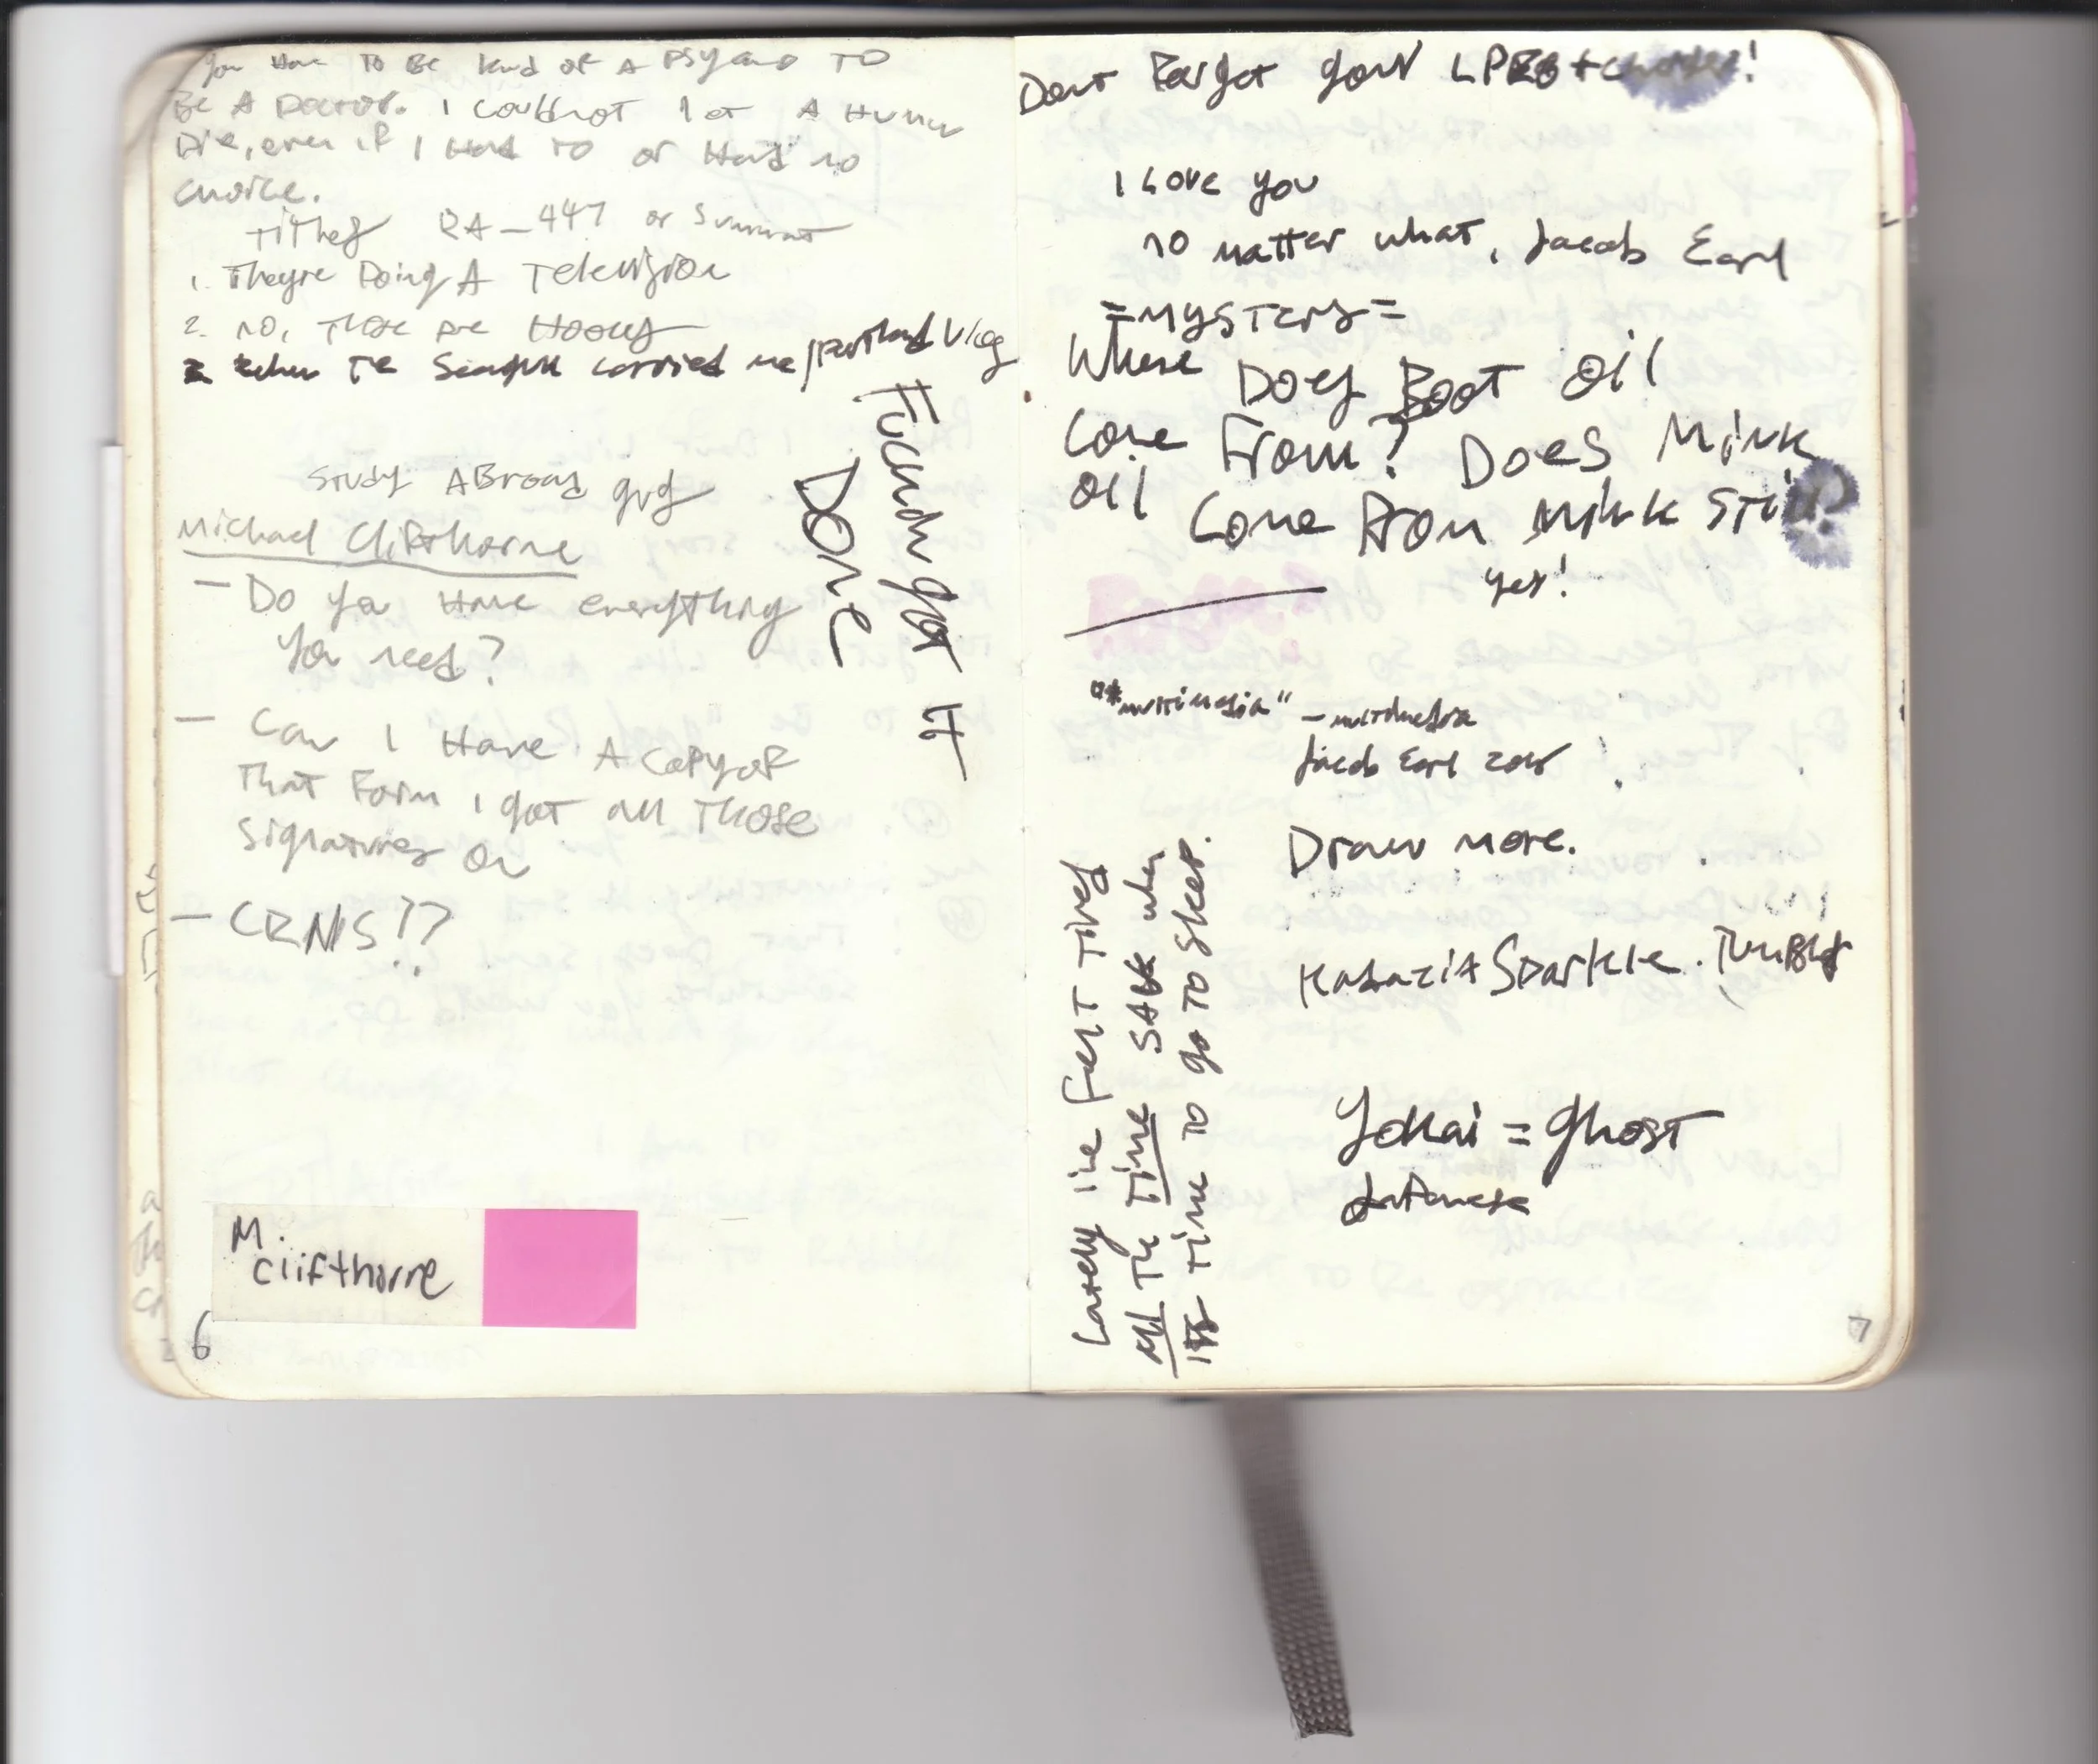 You Have TO BE kind of A PSycho TO
BE A Doctor. I could not let A Human
Die, even if I Had TO or Had no
choice.
Titles RA-447 or Summat
1. They're Doing A Television
2. NO, Those Are Hooves
When The Seagull Carried me / Portland Vlog
Fuckin got IT
DONE
Study ABroad guy
Michael Clifthorne
- Do you Have everything
you need?
- Can I Have A copy of
that Form I got all Those
Signatures on
- CRNS!?
M.
Clifthorne
6
Dont Forget your
I Love you
no matter what, Jacob Earl
=MYSTERY=
Where Does Boot Oil
Come From? Does Mink
Oil Come From Mink Still?
yes!
"multimedia" - multimedia
Jacob Earl
Draw more.
Sparkle. Tumblr
Lately I've Felt Tired
All The Time SAVE when
it's Time TO go TO Sleep.
Yokai = ghost
Japanese
7